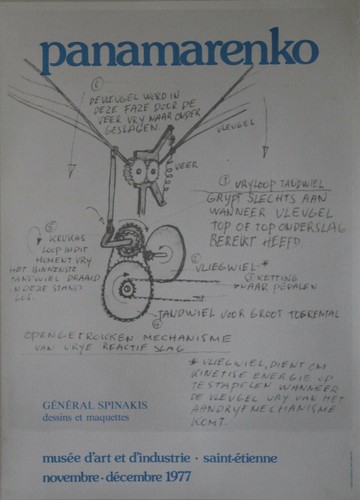 panamarenko
DE VLEUGEL WORD IN
DEZE FAZE DOOR DE
VEER VRY NAAR ONDER
GESLAGEN.
VLEUGEL
VEER
① VRYLOOP TANDWIEL
GRYPT SLECHTS AAN
WANNEER VLEUGEL
TOP OF TOP ONDERSLAG
BEREIKT HEEFD.
KRUKAS
LOOP IN DIT
MOMENT VRY
HET BINNENSTE
TANDWIEL DRAAID
IN DEZE STAND
LOS.
VLIEGWIEL *
KETTING
NAAR PEDALEN
TANDWIEL VOOR GROOT TOERENTAL
OPENGETROKKEN MECHANISME
VAN VRYE REACTIEF SLAG
* VLIEGWIEL, DIENT OM
KINETISE ENERGIE OP
TE STAPELEN WANNEER
DE VLEUGEL VRY VAN HET
AANDRYFMECHANISME
KOMT.
GÉNÉRAL SPINAKIS
dessins et maquettes
musée d'art et d'industrie · saint-étienne
novembre-décembre 1977